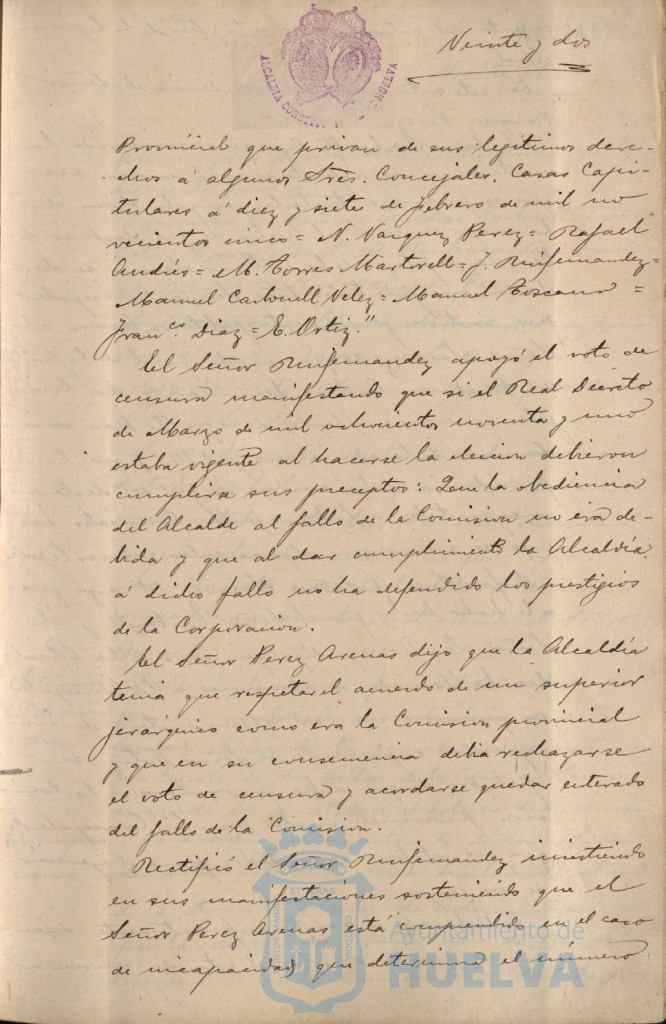 Veinte y dos
ALCALDIA CONSTIT HUELVA
Provincial que privan de sus legitimos dere-
chos á algunos Sres. Concejales. Casas Capi-
tulares á diez y siete de febrero de mil no
vecientos cinco = N. Vazquez Perez = Rafael
Andrés = M. Torres Martorell = J. Ruifernandez =
Manuel Carbonell Velez = Manuel Toscano =
Franco. Diaz = E. Ortiz."
El Señor Ruifernandez apoyó el voto de
censura manifestando que si el Real Decreto
de Marzo de mil ochocientos noventa y uno
estaba vigente al hacerse la eleccion debieron
cumplirse sus preceptos: Que la obediencia
del Alcalde al fallo de la Comision no era de-
bida y que al dar cumplimiento la Alcaldía
á dicho fallo no ha defendido los prestigios
de la Corporacion.
El Señor Perez Arenas dijo que la Alcaldía
tenia que respetar el acuerdo de un superior
jerárquico como era la Comision provincial
y que en su consecuencia debia rechazarse
el voto de censura y acordarse quedar enterado
del fallo de la Comision.
Rectificó el Señor Ruifernandez insistiendo
en sus manifestaciones sosteniendo que el
Señor Perez Arenas está comprendido en el caso
de incapacidad que determina el número
Ayuntamiento de
HUELVA